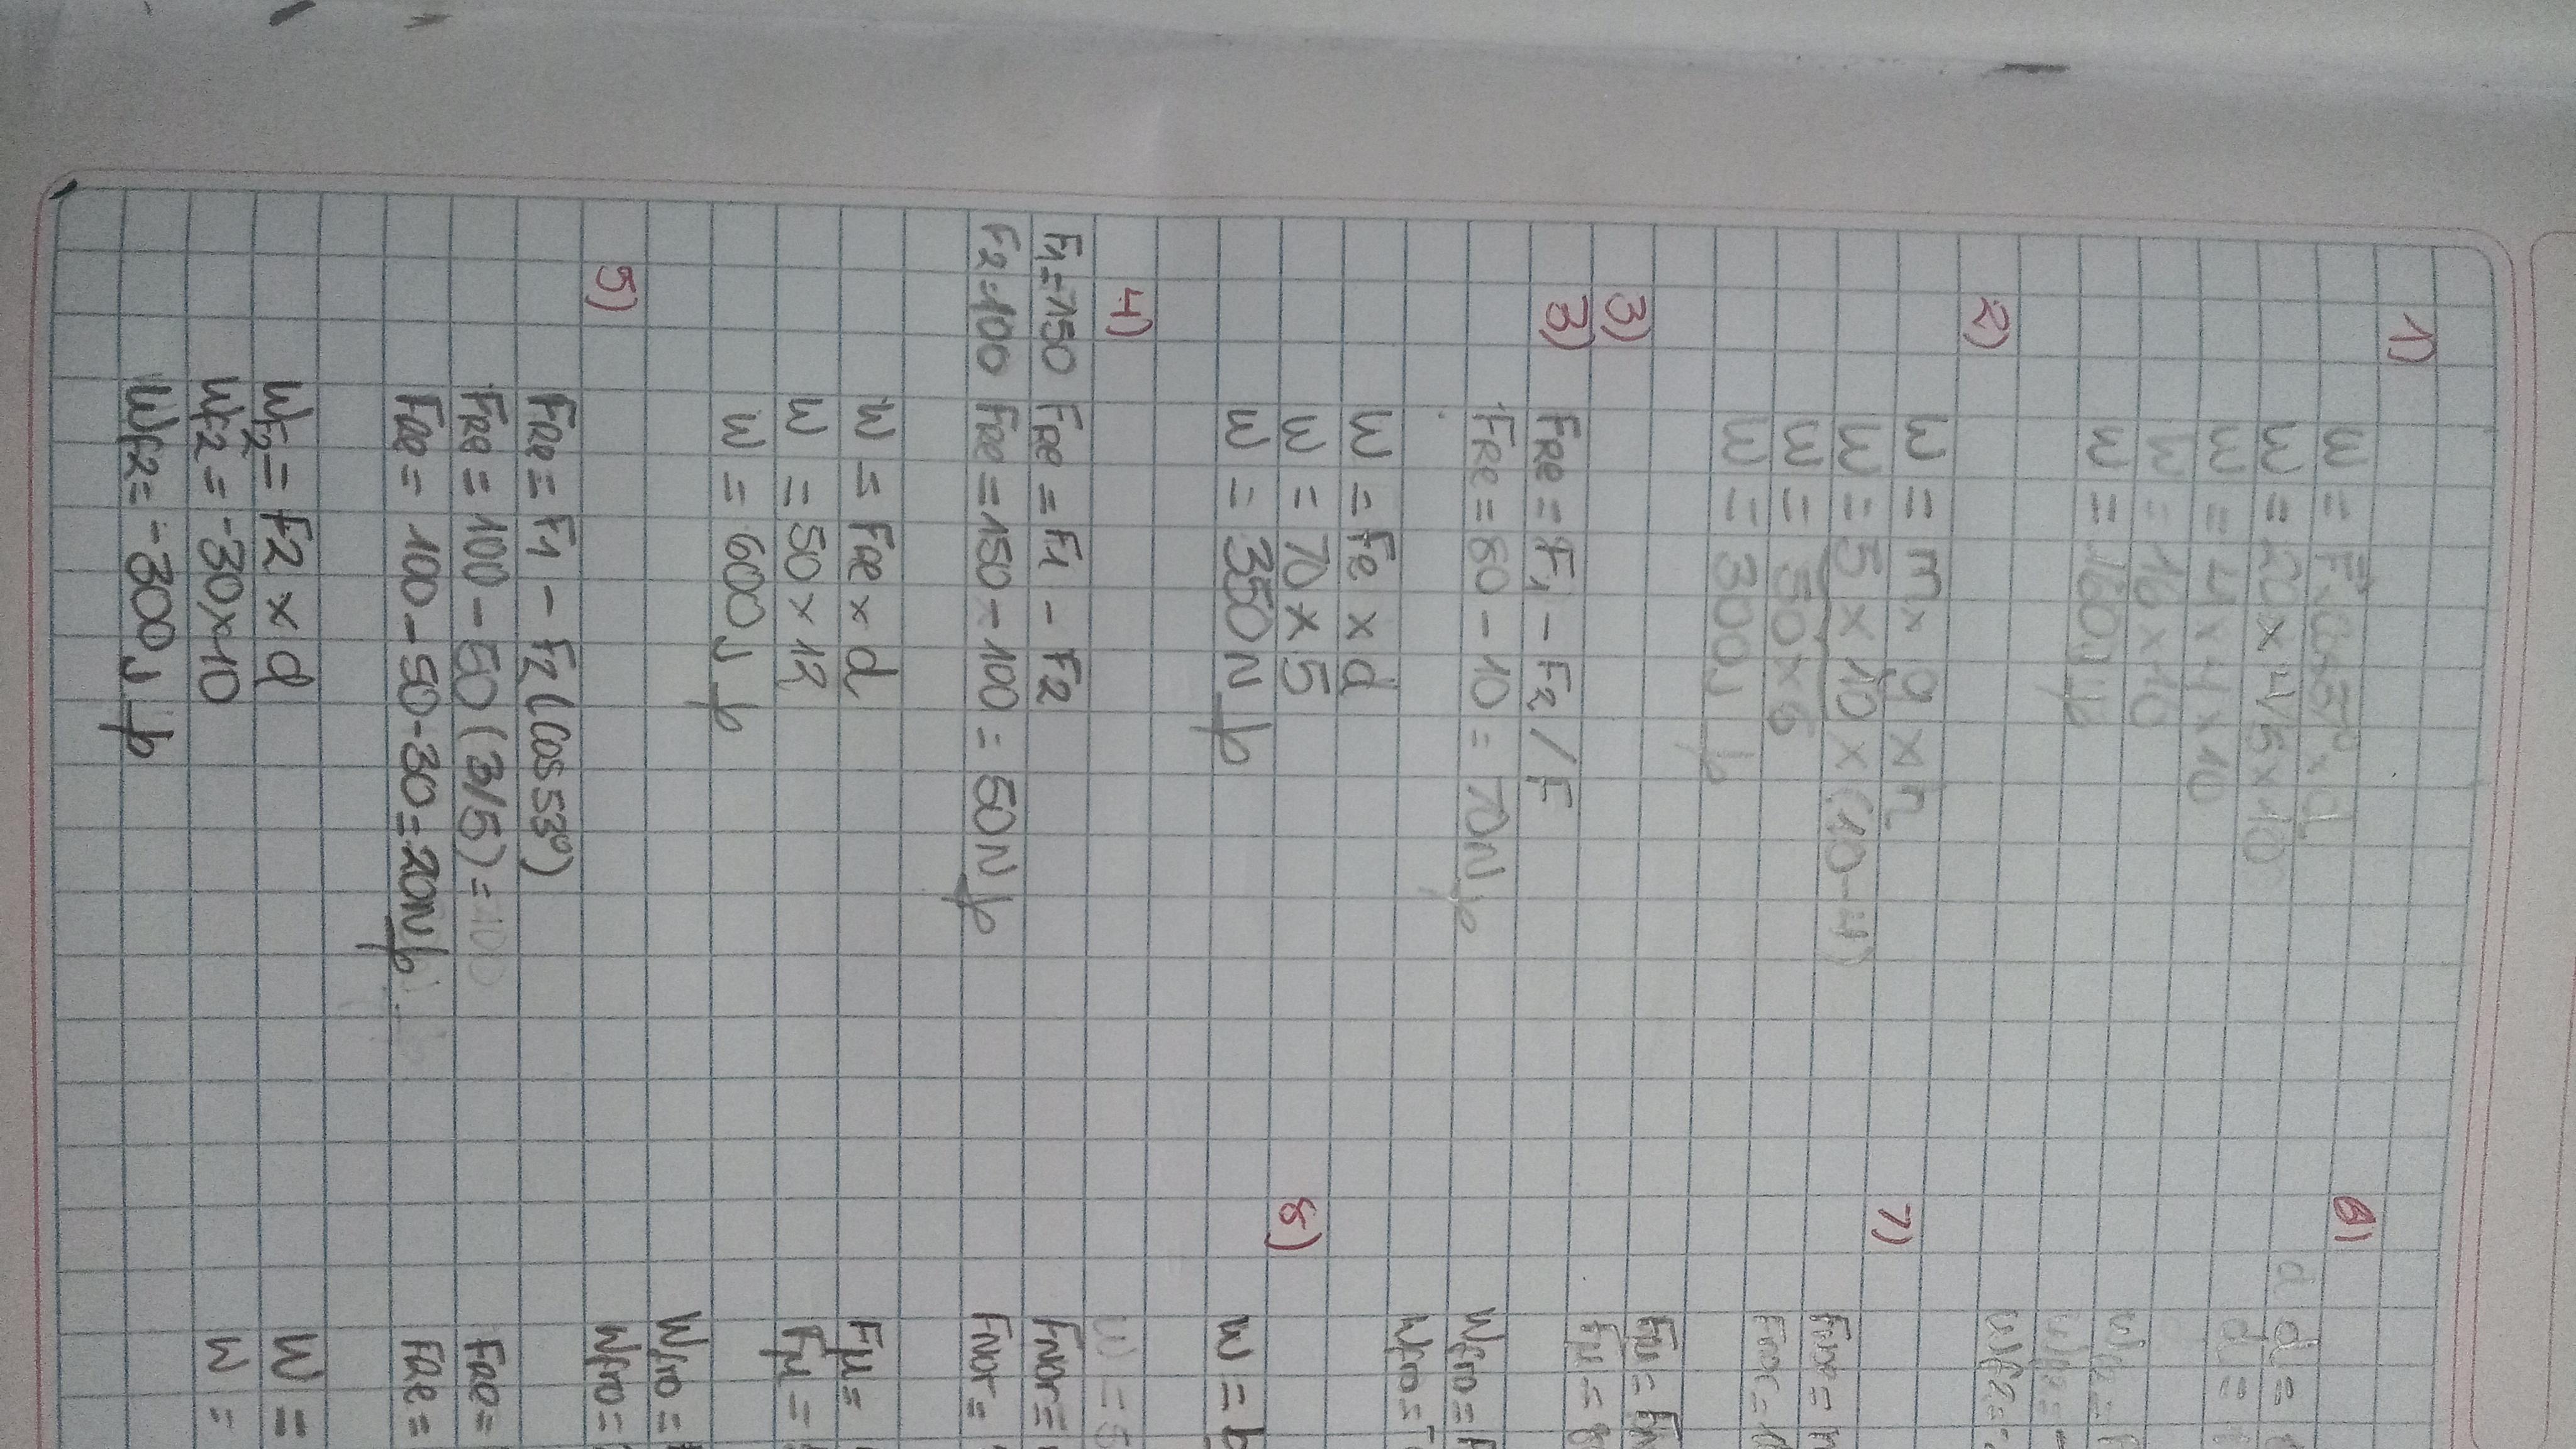 1)
W = F.Cos37°.d
W = 20 x 4/5 x 10
W = 4 x 4 x 10
W = 16 x 10
W = 160J
2)
W = m x g x h
W = 5 x 10 x (10-4)
W = 50 x 6
W = 300J
3)
3) FRe = F1 - F2 / F
FRe = 80 - 10 = 70N
W = Fe x d
W = 70 x 5
W = 350N
4)
F1=150 FRe = F1 - F2
F2=100 FRe = 150 - 100 = 50N
W = FRe x d
W = 50 x 12
W = 600J
5)
FRe = F1 - F2 (Cos 53°)
FRe = 100 - 50 (3/5) = 100
FRe = 100 - 50 - 30 = 20N
WF2 = F2 x d
WF2 = -30 x 10
WF2 = -300J
6)
d d =
d =
WF2 =
7)
Fμ =
Fμ = 8
Wfro = F
Wfro = -
8)
W =
W = 5
FNor =
FNor =
Fμ =
Fμ =
Wfro =
Wfro =
FRe =
FRe =
W =
W =